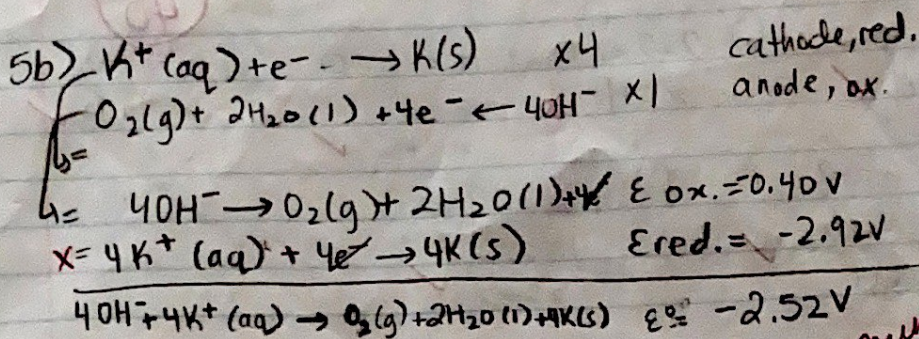 5b) K⁺ (aq) + e⁻ → K(s) x4 cathode, red.
O₂(g) + 2H₂O (l) + 4e⁻ ← 4OH⁻ x1 anode, ox.
4OH⁻ → O₂(g) + 2H₂O (l) + 4e⁻ ε ox. = 0.40 V
x= 4K⁺ (aq) + 4e⁻ → 4K(s) εred. = -2.92V
4OH⁻ + 4K⁺ (aq) → O₂(g) + 2H₂O (l) + 4K(s) ε° = -2.52V